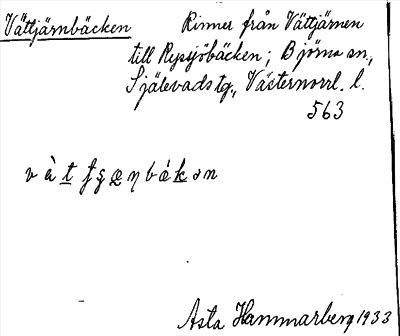 Vättjärnbäcken Rinner från Vättjärnen
till Rysjöbäcken; Björna sn.,
Själevads tg., Västernorrl. l.
563
Asta Hammarberg 1933